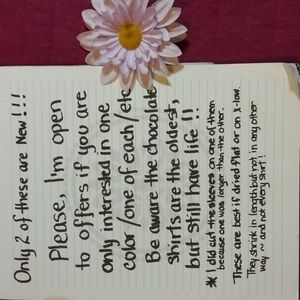 Only 2 of these are New!!!
Please, I'm open
to offers if you are
only interested in one
color/one of each/etc
Be aware the chocolate
shirts are the oldest,
but still have life!!
* I did cut the sleeves on one of them
because one was longer than the other.
These are best if dried flat or on x-low.
They shrink in length but not in any other
way ~ and not every shirt!